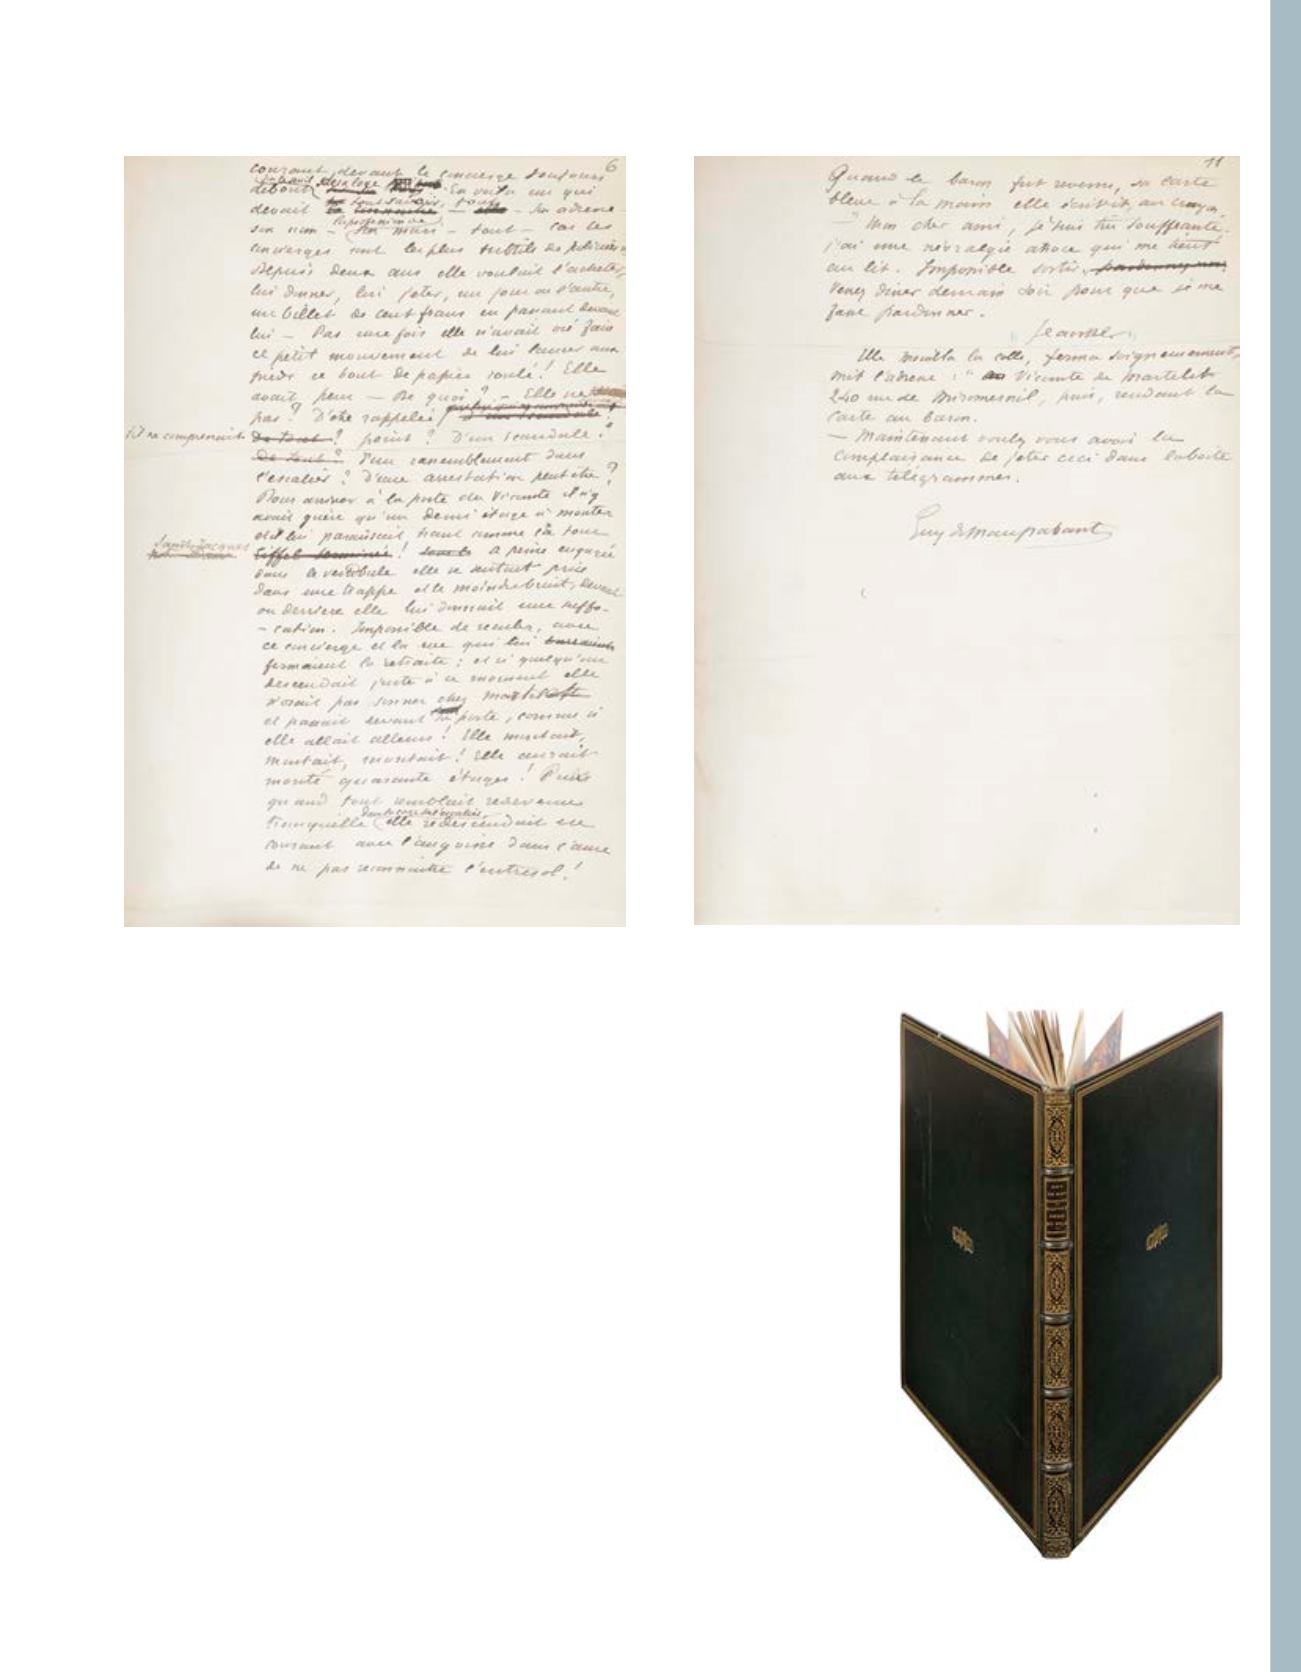 6
courant, devant le concierge toujours
debout
En voilà un qui
devait tout savoir, tout – son adresse
son nom – la profession de son mari – tout – car les
concierges sont les plus subtils des policiers
Depuis deux ans elle voulait l'acheter,
lui donner, lui jeter, un jour ou l'autre,
un billet de cent francs en passant devant
lui – Pas une fois elle n'avait osé faire
ce petit mouvement de lui lancer aux
pieds ce bout de papier roulé! Elle
avait peur – De quoi? – Elle ne
pas? D'être rappelée
s'il ne comprenait
point? D'un scandale?
D'un rassemblement dans
l'escalier? D'une arrestation peut être?
Pour arriver à la porte du Vicomte il n'y
avait guère qu'un demi étage à monter
et il lui paraissait haut comme la tour
Saint Jacques
! A peine engagée
dans le vestibule elle se sentait prise
dans une trappe et le moindre bruit, devant
ou derrière elle lui donnait une suffo-
-cation. Impossible de reculer, avec
ce concierge et la rue qui lui
fermaient la retraite; et si quelqu'un
descendait juste à ce moment elle
n'osait pas sonner chez Martelet
et passait devant la porte, comme si
elle allait ailleurs! Elle montait,
montait, montait! Elle aurait
monté quarante étages! Puis
quand tout semblait redevenu
tranquille dans la cage de l'escalier, elle redescendait en
courant avec l'angoisse dans l'âme
de ne pas reconnaître l'entresol!
11
Quand le baron fut revenu, sa carte
bleue à la main elle écrivit, au crayon,
" Mon cher ami, je suis très souffrante,
j'ai une névralgie atroce qui me tient
au lit. Impossible sortir.
Venez dîner demain soir pour que je me
fasse pardonner.
Jeanne "
Elle mouilla la colle, ferma soigneusement,
mit l'adresse : " Vicomte de Martelet
240 rue de Miromesnil, puis, rendant la
carte au baron.
– Maintenant voulez vous avoir la
complaisance de jeter ceci dans la boîte
aux télégrammes.
Guy de Maupassant